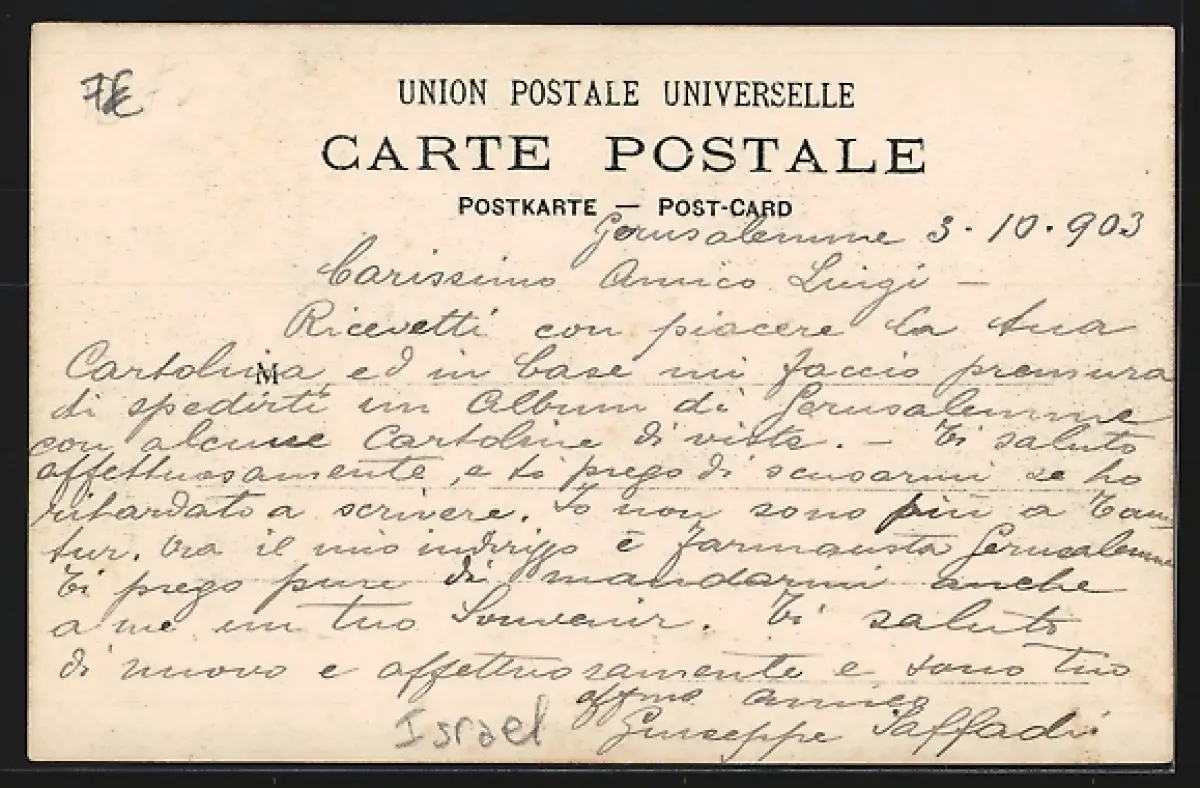 7€
UNION POSTALE UNIVERSELLE
CARTE POSTALE
POSTKARTE — POST-CARD
Gerusalemme 3·10·903
Carissimo Amico Luigi –
Ricevetti con piacere la tua
Cartolina, ed in base mi faccio premura
M
di spedirti un Album di Gerusalemme
con alcune Cartoline di viste. – Ti saluto
affettuosamente, e ti prego di scusarmi se ho
ritardato a scrivere. Io non sono più a Tan
tur. Ora il mio indirizzo è farmacista Gerusalemme
Ti prego pure di mandarmi anche
a me un tuo Souvenir. Ti saluto
di nuovo e affettuosamente e sono tuo
affmo amico
Giuseppe Saffadi
Israel